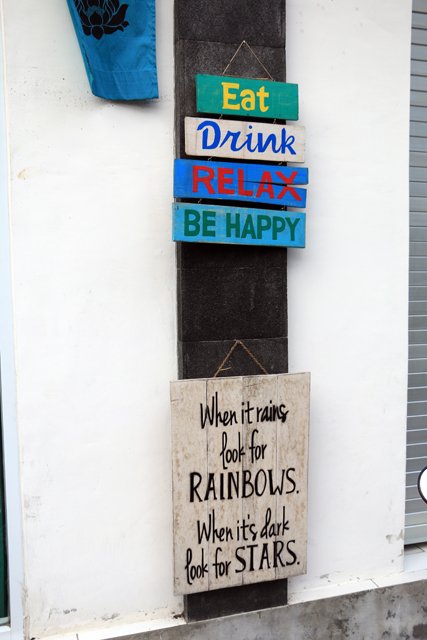 Eat
Drink
RELAX
BE HAPPY
When it rains
look for
RAINBOWS.
When it's dark
look for STARS.